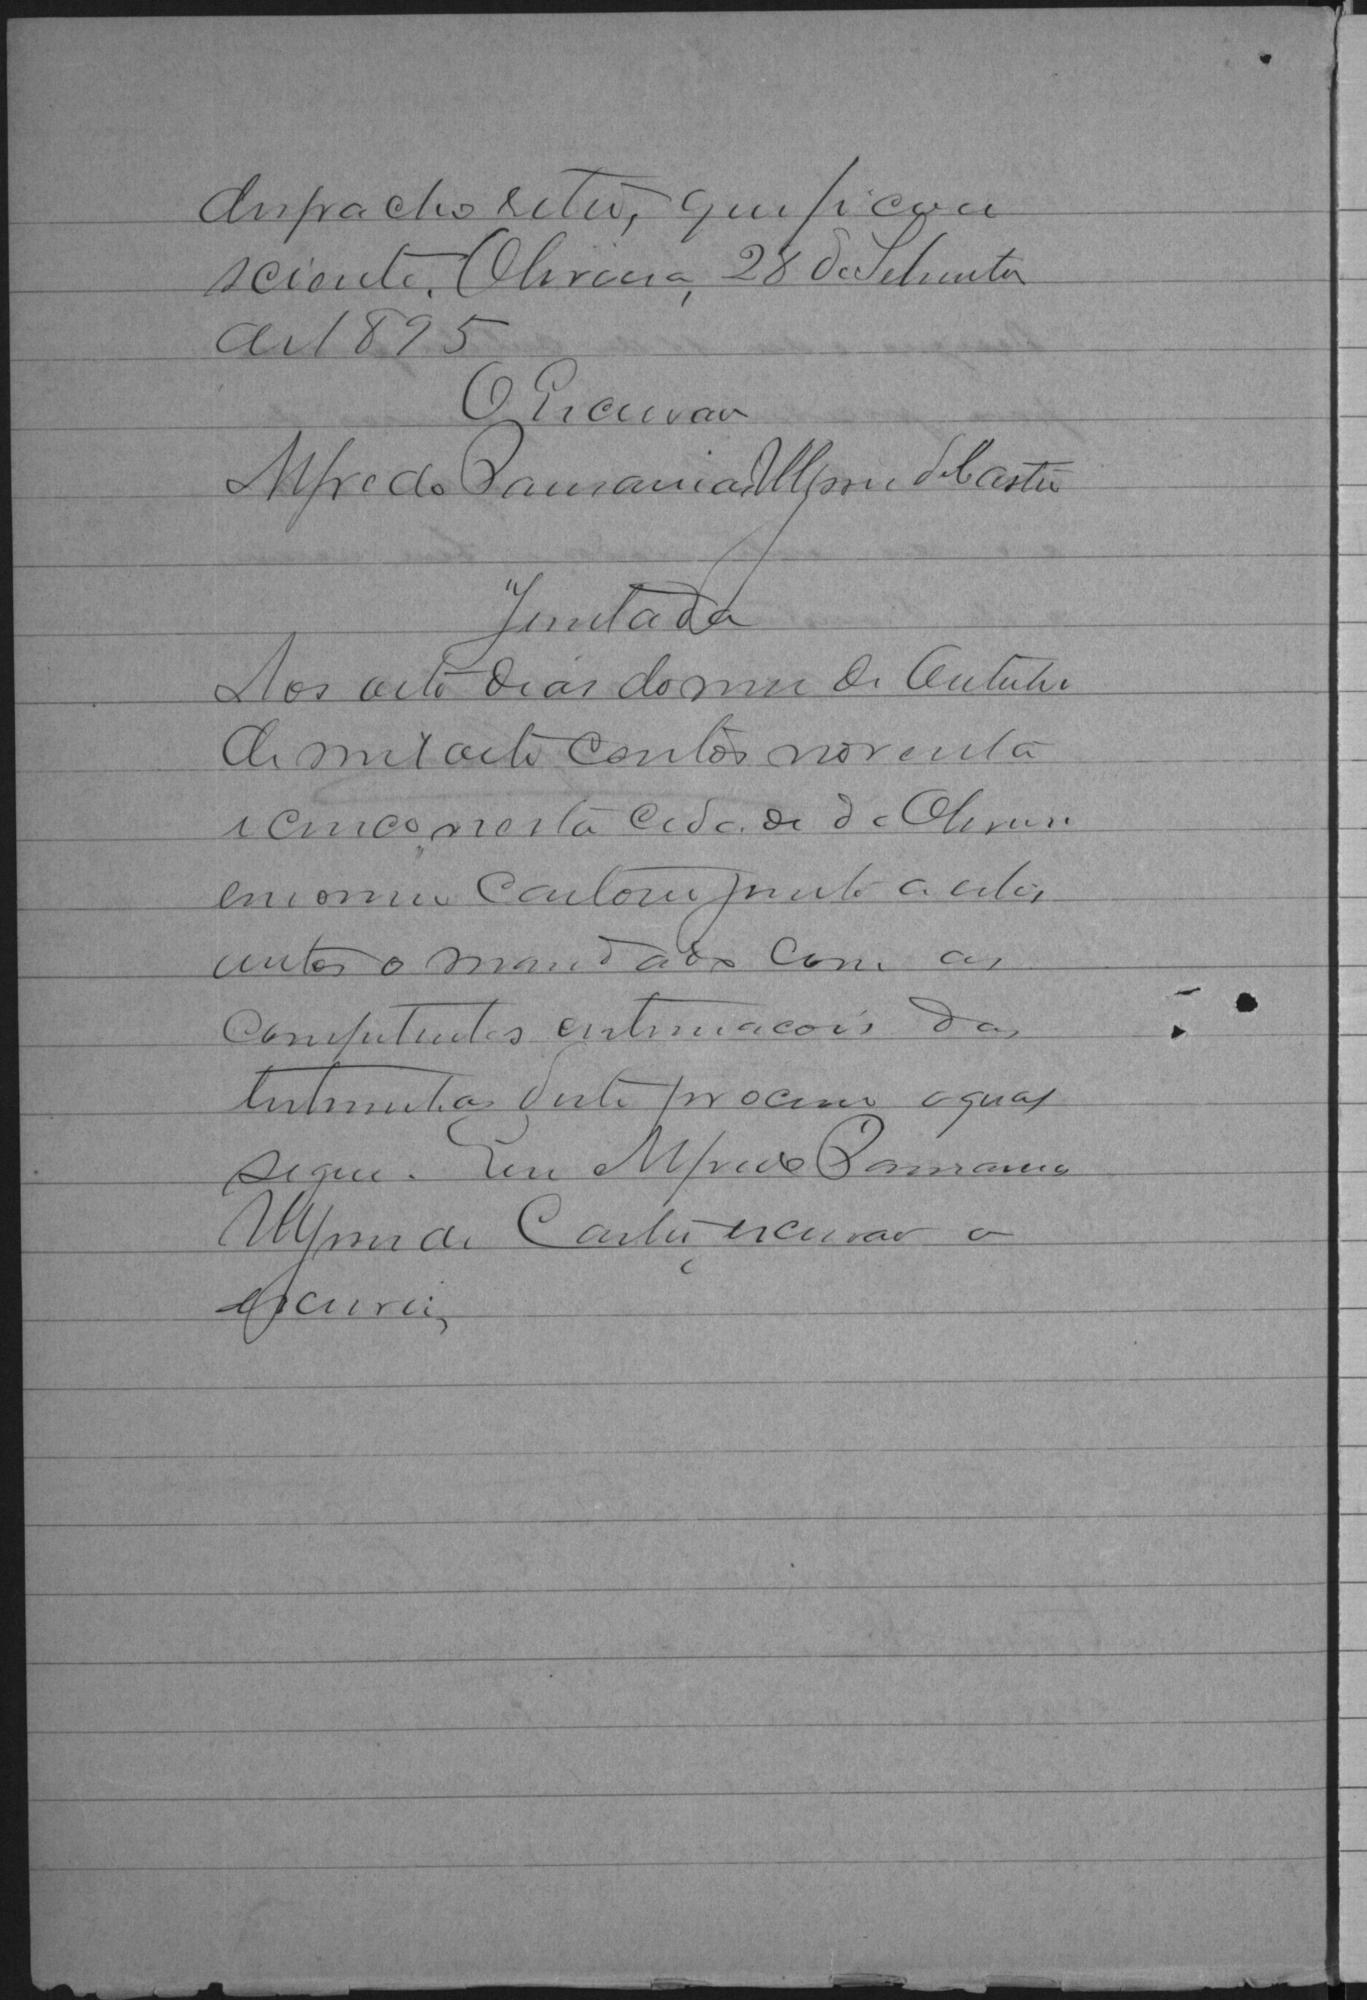 despacho retro, que ficou
sciente. Oliveira, 28 de Setembro
de 1895
O Escrivão
Alfredo Pausanias de Castro
Juntada
Aos oito dias do mez de Outubro
de mil oito centos noventa
e cinco, nesta cidade de Oliveira
em o meu Cartorio junto a estes
autos o mandado com as
competentes entimacois das
testemunhas deste processo o qual
segue. Eu Alfredo Pausanias
de Castro, escrivão o
escrevi,